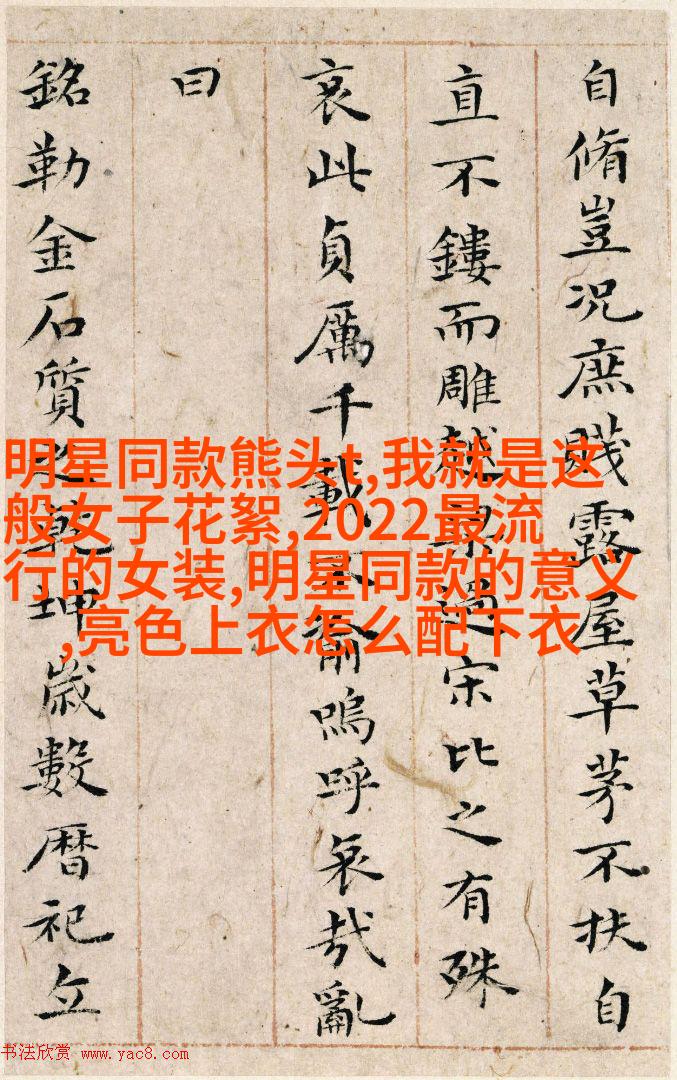 自脩豈況庶賤露屋草茅不扶自
直不鏤而雕越梁過宋比之有殊
哀此貞厲千載不渝嗚呼哀哉亂
曰
銘勒金石質之乾坤歲數曆祀立
明星同款熊头t,我就是这
般女子花絮,2022最流
行的女装,明星同款的意义
,亮色上衣怎么配下衣
书法欣赏 www.yac8.com